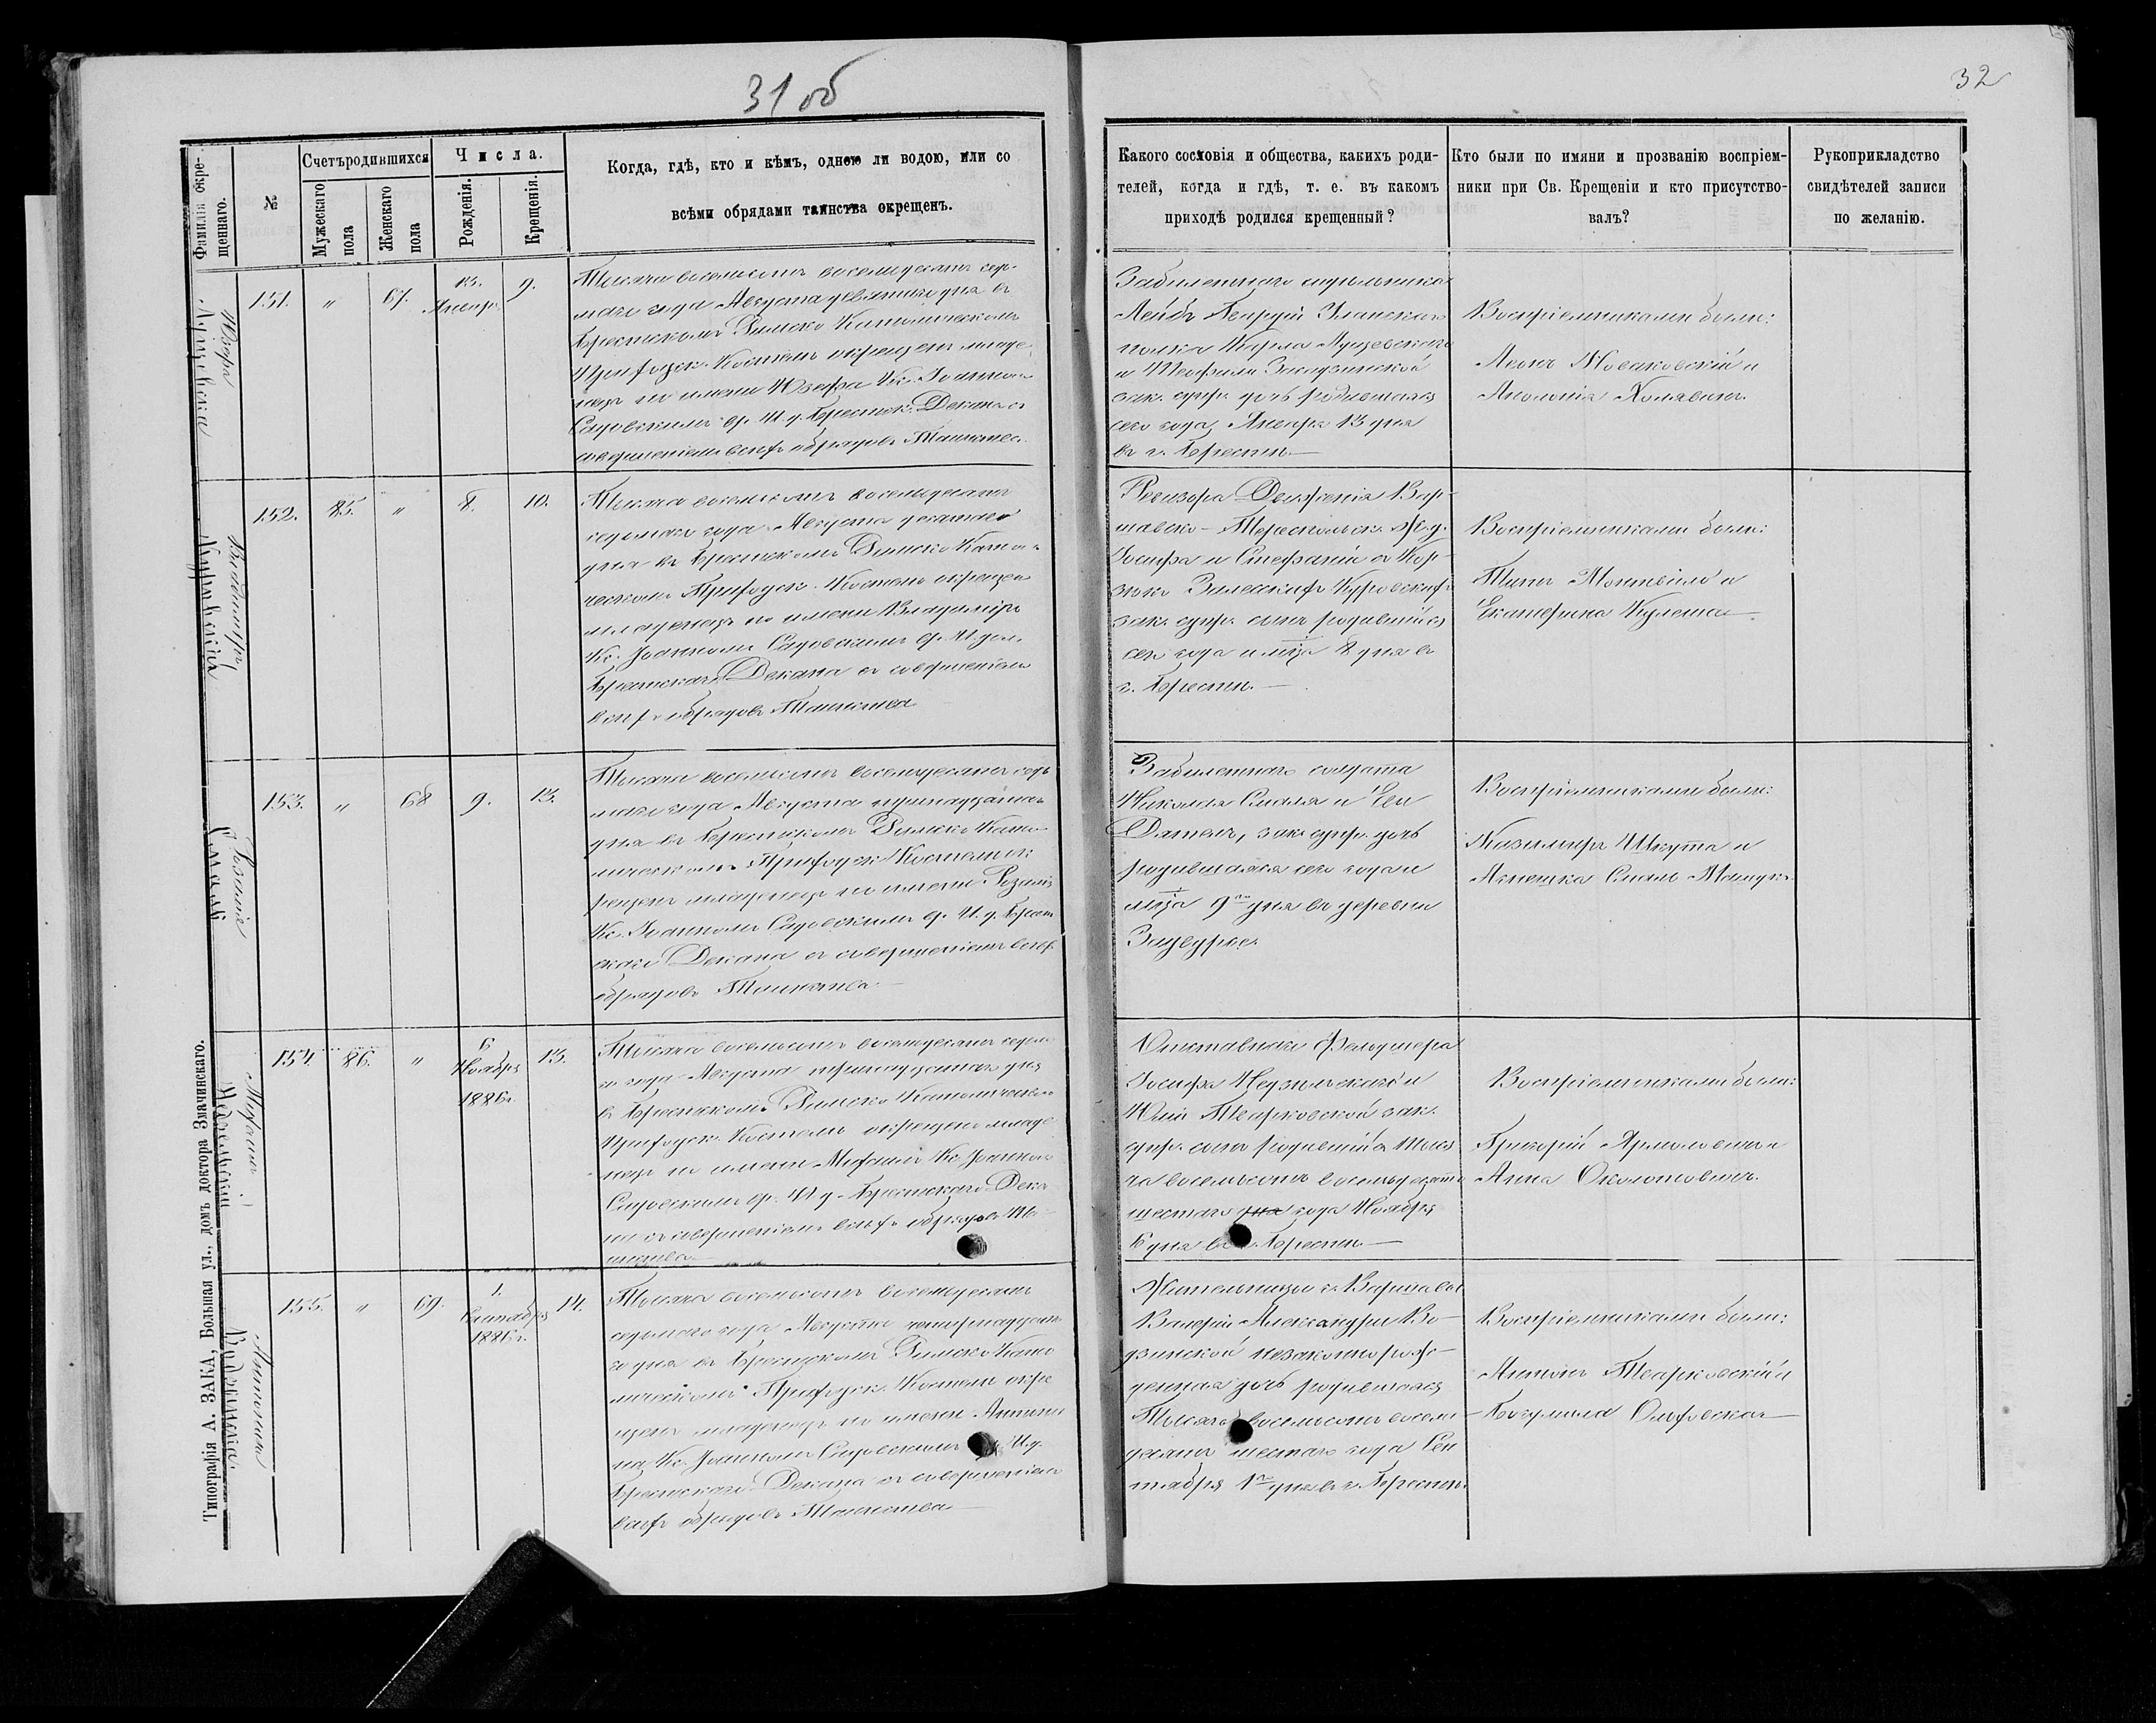 31 об
32
Фамилія окрещеннаго.
№
Счетъ родившихся
Мужескаго пола
Женскаго пола
Числа.
Рожденія.
Крещенія.
Когда, гдѣ, кто и кѣмъ, одною ли водою, или со
всѣми обрядами таинства окрещенъ.
Какого сословія и общества, какихъ роди-
телей, когда и гдѣ, т. е. въ какомъ
приходѣ родился крещенный?
Кто были по имяни и прозванію воспріем-
ники при Св. Крещеніи и кто присутство-
валъ?
Рукоприкладство
свидѣтелей записи
по желанію.
Юзефа
151. " 67. 13. Январ. 9.
Тысяча восемьсотъ восемьдесятъ седь-
маго года Августа девятаго дня въ
Брестскомъ Римско Католическомъ
Приходск. Костелѣ окрещенъ младе-
нецъ по имени Юзефа Кс. Іоанномъ
Садовскимъ И. д. Брестск. Декана съ
совершеніемъ всѣхъ обрядовъ Таинства.
Забилетнаго
Лейбъ Гвардіи Уланскаго
полка Карла
и Теофили
зак. супр. дочь родившаяся
сего года Января 13 дня
въ г. Брестѣ.
Воспріемниками были:
Леонъ Новаковскій и
Аполонія
Владиміръ
Куровскій
152. 85. " 8. 10.
Тысяча восемьсотъ восемьдесятъ
седьмаго года Августа десятаго
дня въ Брестскомъ Римско Катол-
ческомъ Приходск. Костелѣ окрещенъ
младенецъ по имени Владиміръ
Кс. Іоанномъ Садовскимъ И. дол.
Брестскаго Декана съ совершеніемъ
всѣхъ обрядовъ Таинства
Ревизора Движенія Вар-
шавско-Тереспольск. ж. д.
Іосифа и Стефаніи съ
Залескихъ Куровскихъ
зак. супр. сынъ родившійся
сего года и мѣсца 8 дня въ
г. Брестѣ.
Воспріемниками были:
Титъ Монтвило и
Екатерина Кулеша
Розалія
Смаль
153. " 68 9. 13.
Тысяча восемьсотъ восемьдесятъ седь
маго года Августа тринадцатаго
дня въ Брестскомъ Римско Като-
лическомъ Приходск. Костелѣ ок-
рещенъ младенецъ по имени Розалія
Кс. Іоанномъ Садовскимъ И. д. Брест
скаго Декана съ совершеніемъ всѣхъ
обрядовъ Таинства
Забилетнаго солдата
Николая Смаля и Евы
зак. супр. дочь
родившаяся сего года и
мѣсца 9го дня въ деревни
Воспріемниками были:
Казимиръ Шкута и
Агнешка Смаль
Михаилъ
154 86. " 6 Ноября 1886г. 13.
Тысяча восемьсотъ восемьдесятъ седьма
го года Августа тринадцатаго дня
въ Брестскомъ Римско Католическомъ
Приходск. Костелѣ окрещенъ младе
нецъ по имени Михаилъ Кс. Іоанномъ
Садовскимъ И. д. Брестскаго Дека
на съ совершеніемъ всѣхъ обрядовъ Та-
инства
Отставнаго Фельдшера
Іосифа и
Юліи Тварковской зак.
супр. сынъ родившійся тыся
ча восемьсотъ восемьдесятъ
шестаго дня года Ноября
6 дня въ г. Брестѣ.
Воспріемниками были:
Григорій Ярмоловичъ и
Анна Околотовичъ.
Антонина
Водзинская
155. " 69. 1. Сентября 1886г. 14.
Тысяча восемьсотъ восемьдесятъ
седьмаго года Августа четырнадцата-
го дня въ Брестскомъ Римско Като
лическомъ Приходск. Костелѣ окре
щенъ младенецъ по имени Антони
на Кс. Іоанномъ Садовскимъ И. д.
Брестскаго Декана съ совершеніемъ
всѣхъ обрядовъ Таинства
Жительницы г. Варшавы
Валеріи Александры Во-
дзинской незаконнорож-
денная дочь родившаяся
Тысяча восемьсотъ восемь-
десятъ шестаго года Сен
тября 1го дня въ г. Брестѣ.
Воспріемниками были:
Антонъ Тварковскій и
Богумила
Типографія А. ЗАКА, Большая ул., домъ доктора Змачинскаго.